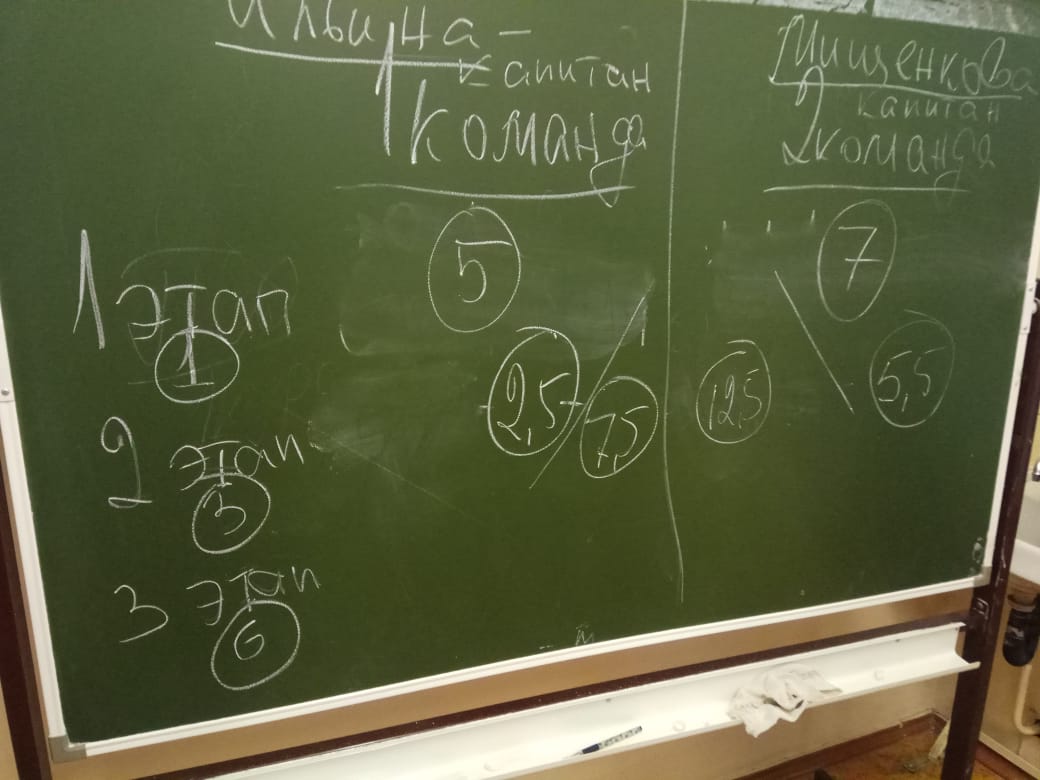 Ильина -
капитан
1 команда
Мищенкова
капитан
2 команда
1 этап
1
5
7
2,5
7,5
12,5
5,5
2 этап
3
3 этап
6